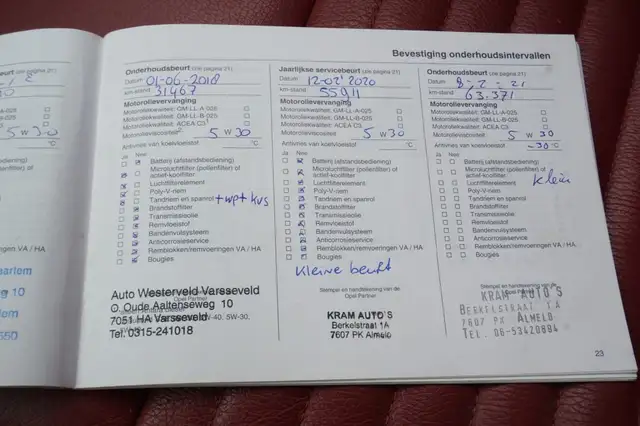 Bevestiging onderhoudsintervallen
beurt (zie pagina 21)
5 w 30
°C
VA / HA
Onderhoudsbeurt (zie pagina 21)
Datum 01-06-2018
km-stand 31467
Motorolievervanging
Motoroliekwaliteit: GM-LL-A-025
Motoroliekwaliteit: GM-LL-B-025
Motoroliekwaliteit: ACEA C3
Motorolieviscositeit 5 W 30
Antivries van koelvloeistof °C
Ja Nee
Batterij (afstandsbediening)
Microluchtfilter (pollenfilter) of
actief-koolfilter
Luchtfilterelement
Poly-V-riem
Tandriem en spanrol + wpt kvs
Brandstoffilter
Transmissieolie
Remvloeistof
Bandenvulsysteem
Anticorrosieservice
Remblokken/remvoeringen VA / HA
Bougies
Opel Partner
Auto Westerveld Varsseveld
O. Oude Aaltenseweg 10
7051 HA Varsseveld
Tel. 0315-241018
Jaarlijkse servicebeurt (zie pagina 21)
Datum 12-02-2020
km-stand 55911
Motorolievervanging
Motoroliekwaliteit: GM-LL-A-025
Motoroliekwaliteit: GM-LL-B-025
Motoroliekwaliteit: ACEA C3
Motorolieviscositeit 5 W 30
Antivries van koelvloeistof °C
Ja Nee
Batterij (afstandsbediening)
Microluchtfilter (pollenfilter) of
actief-koolfilter
Luchtfilterelement
Poly-V-riem
Tandriem en spanrol
Brandstoffilter
Transmissieolie
Remvloeistof
Bandenvulsysteem
Anticorrosieservice
Remblokken/remvoeringen VA / HA
Bougies
Kleine beurt
Stempel en handtekening van de
Opel Partner
KRAM AUTO'S
Berkelstraat 1A
7607 PK Almelo
Onderhoudsbeurt (zie pagina 21)
Datum 8-2-21
km-stand 63.371
Motorolievervanging
Motoroliekwaliteit: GM-LL-A-025
Motoroliekwaliteit: GM-LL-B-025
Motoroliekwaliteit: ACEA C3
Motorolieviscositeit 5 W 30
Antivries van koelvloeistof -30 °C
Ja Nee
Batterij (afstandsbediening)
Microluchtfilter (pollenfilter) of
actief-koolfilter
Luchtfilterelement
Poly-V-riem
Tandriem en spanrol
Brandstoffilter
Transmissieolie
Remvloeistof
Bandenvulsysteem
Anticorrosieservice
Remblokken/remvoeringen VA / HA
Bougies
Stempel en handtekening van de
KRAM AUTO'S
BERKELSTRAAT 1A
7607 PK ALMELO
TEL. 06-53420884
23